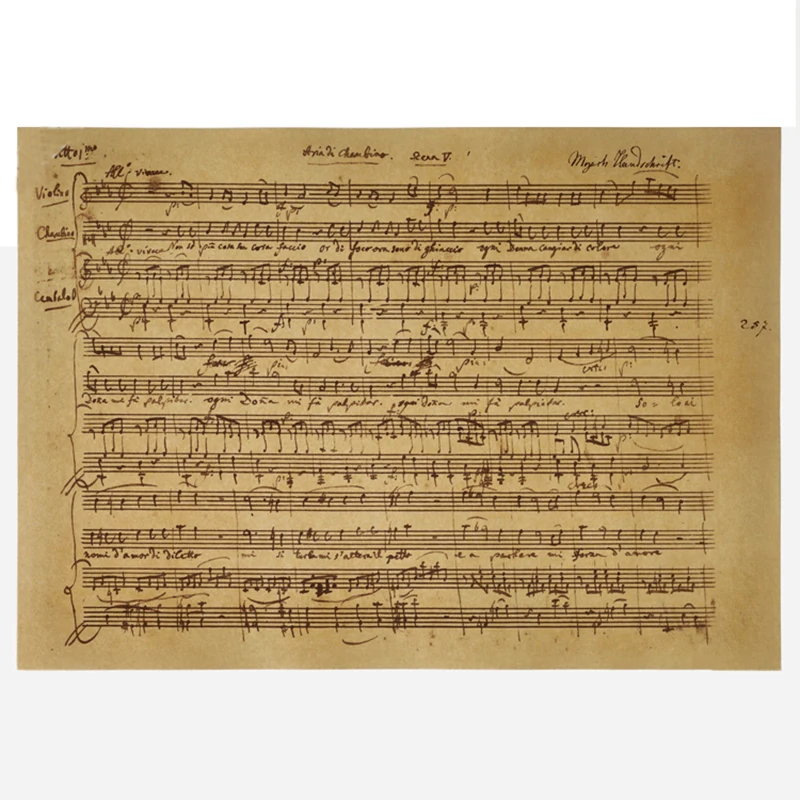 Atto 1mo Aria di Cherubino. Scena V. Mozarts Handschrift.
All:o vivace.
Violino
Cherubino
Non so più cosa son cosa faccio or di foco ora sono di ghiaccio ogni Donna cangiar di colore ogni
All:o vivace
Cembalo
257.
cresc: p:
Dona mi fà palpitar. ogni Doña mi fà palpitar. ogni dona mi fà palpitar. So - loai
cresc:
nomi d'amor di diletto mi si turba mi s'altera il petto e a parlare mi forza d'amore